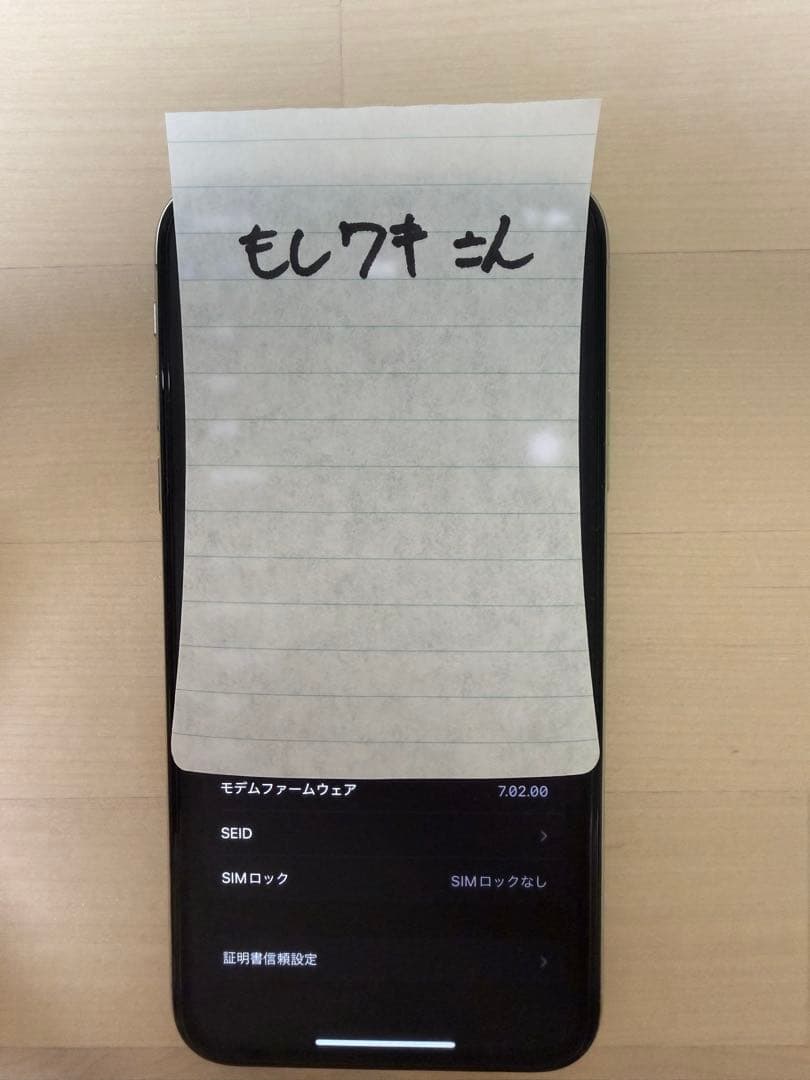 もしワキさん
モデムファームウェア 7.02.00
SEID
SIMロック SIMロックなし
証明書信頼設定